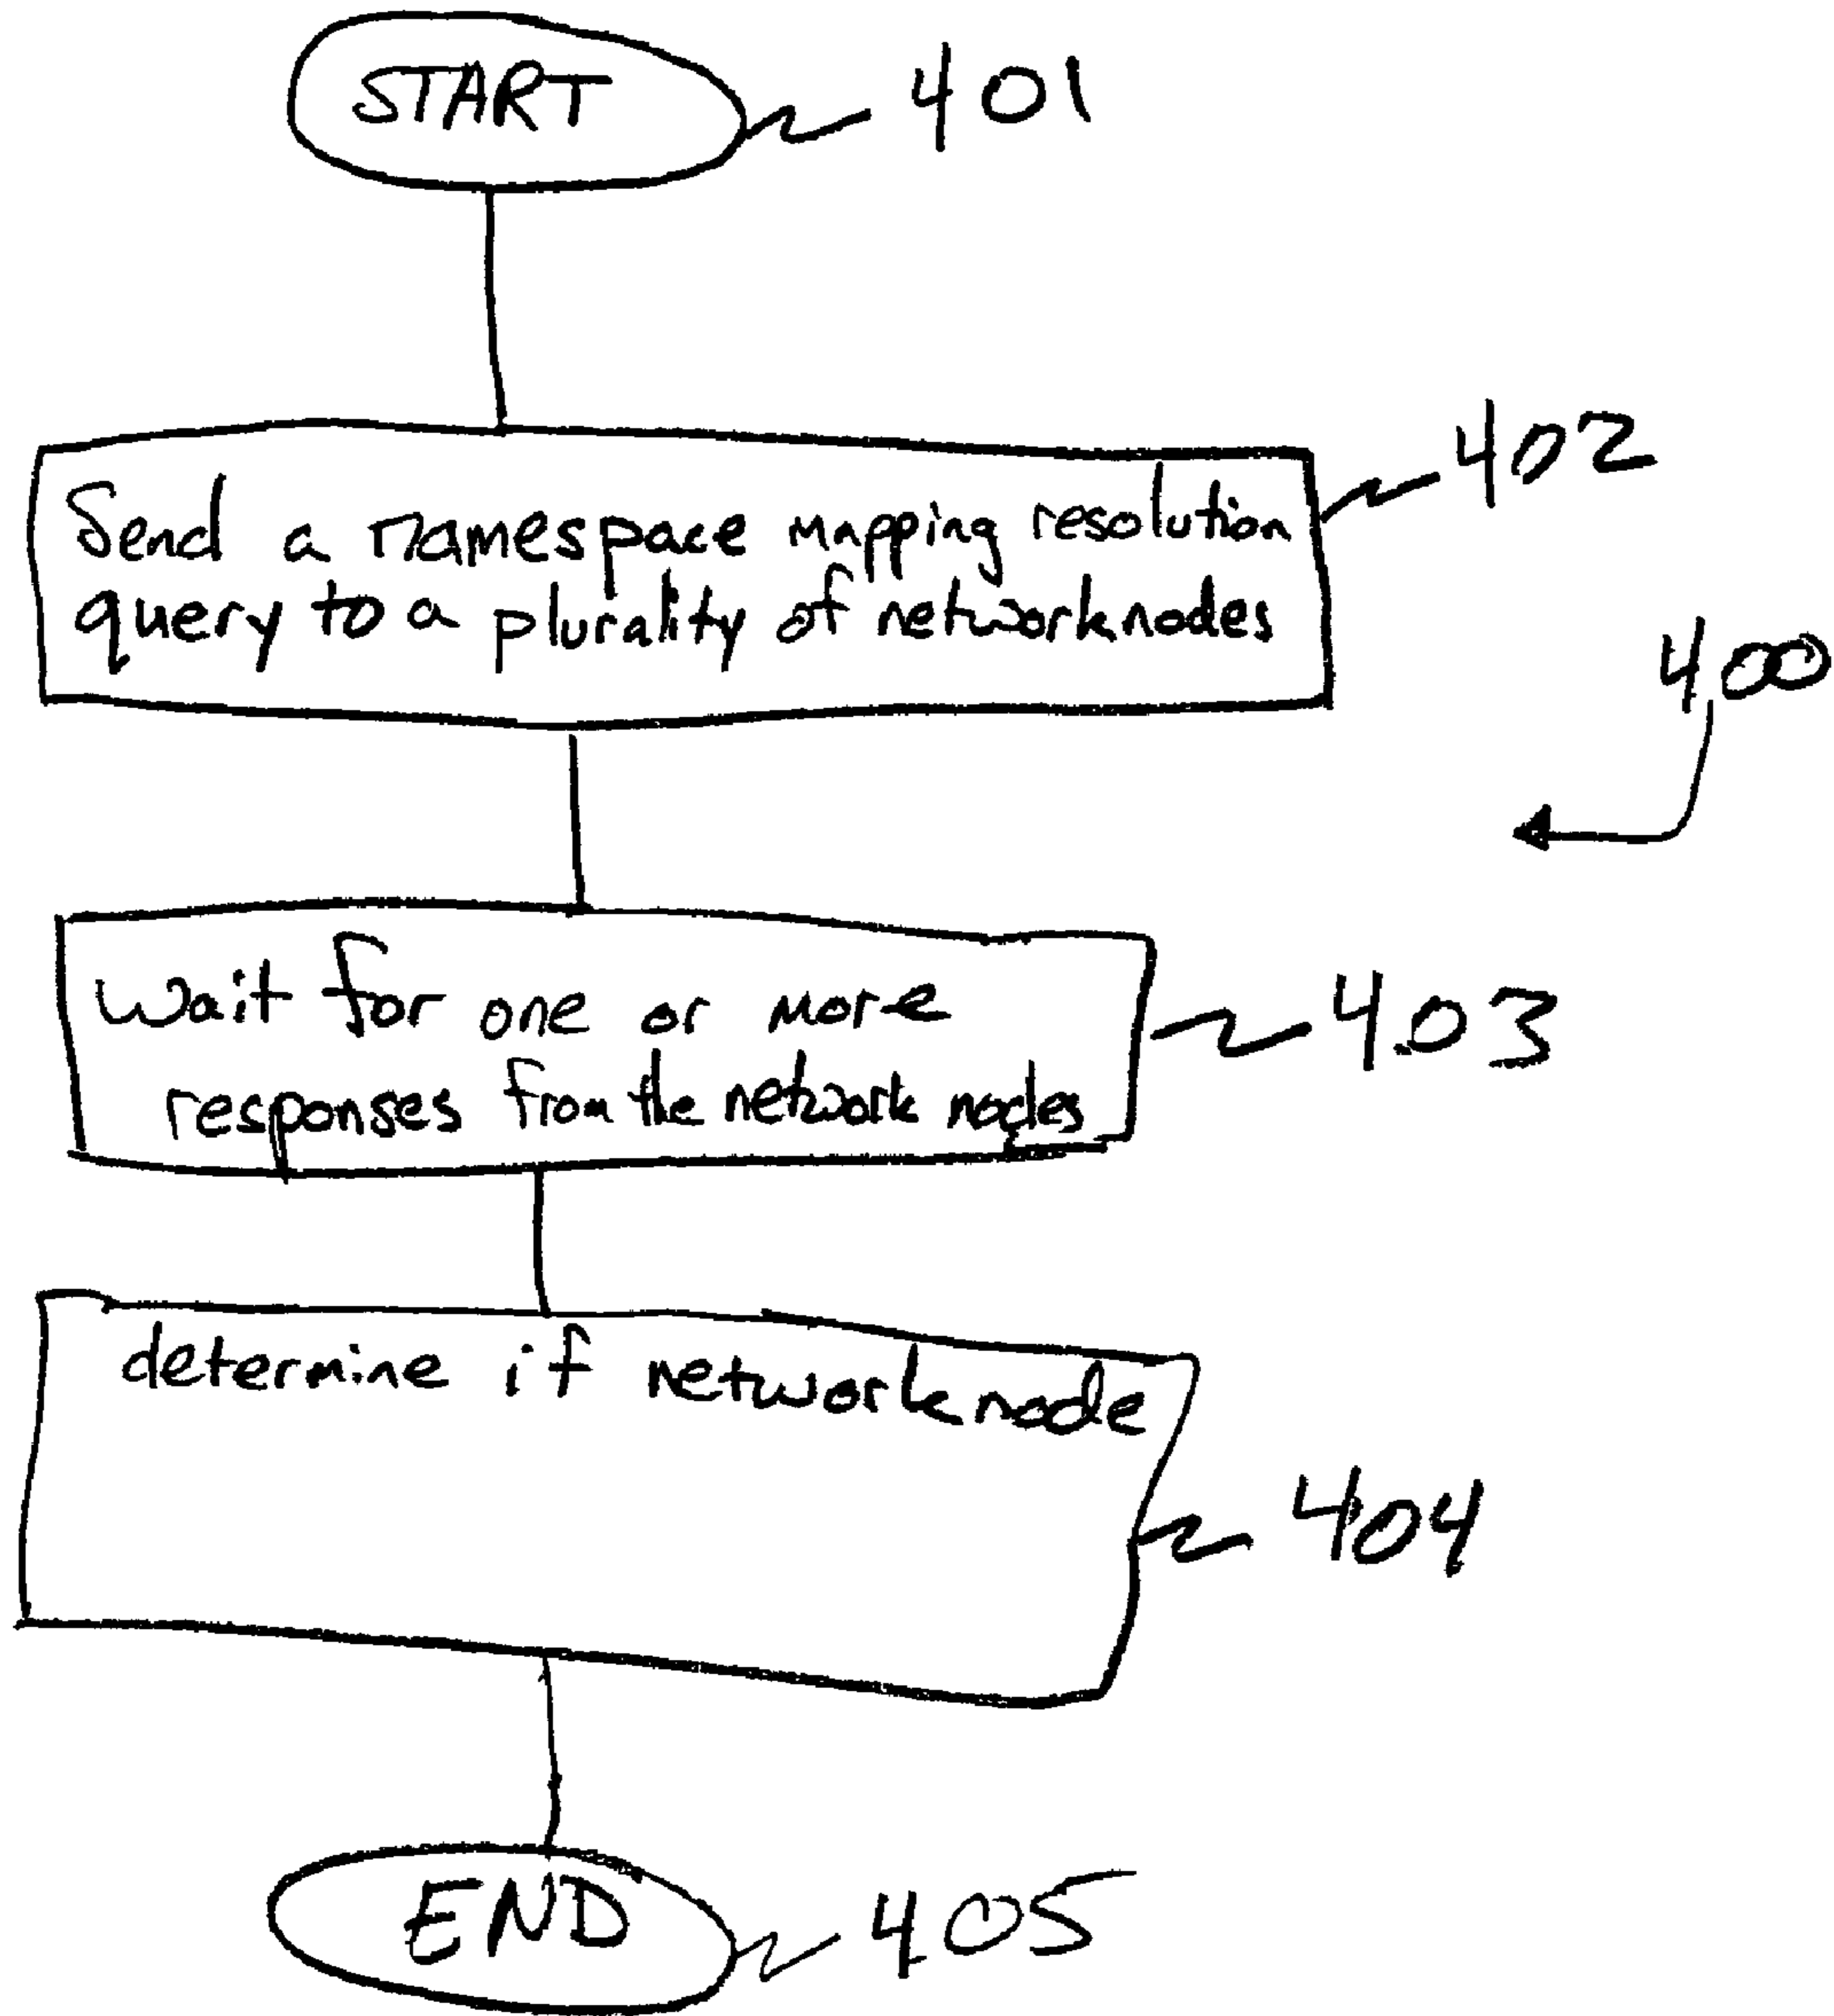 START
401
402
Send a namespace mapping resolution
query to a plurality of network nodes
400
Wait for one or more
responses from the network nodes
403
determine if network node
404
END
405